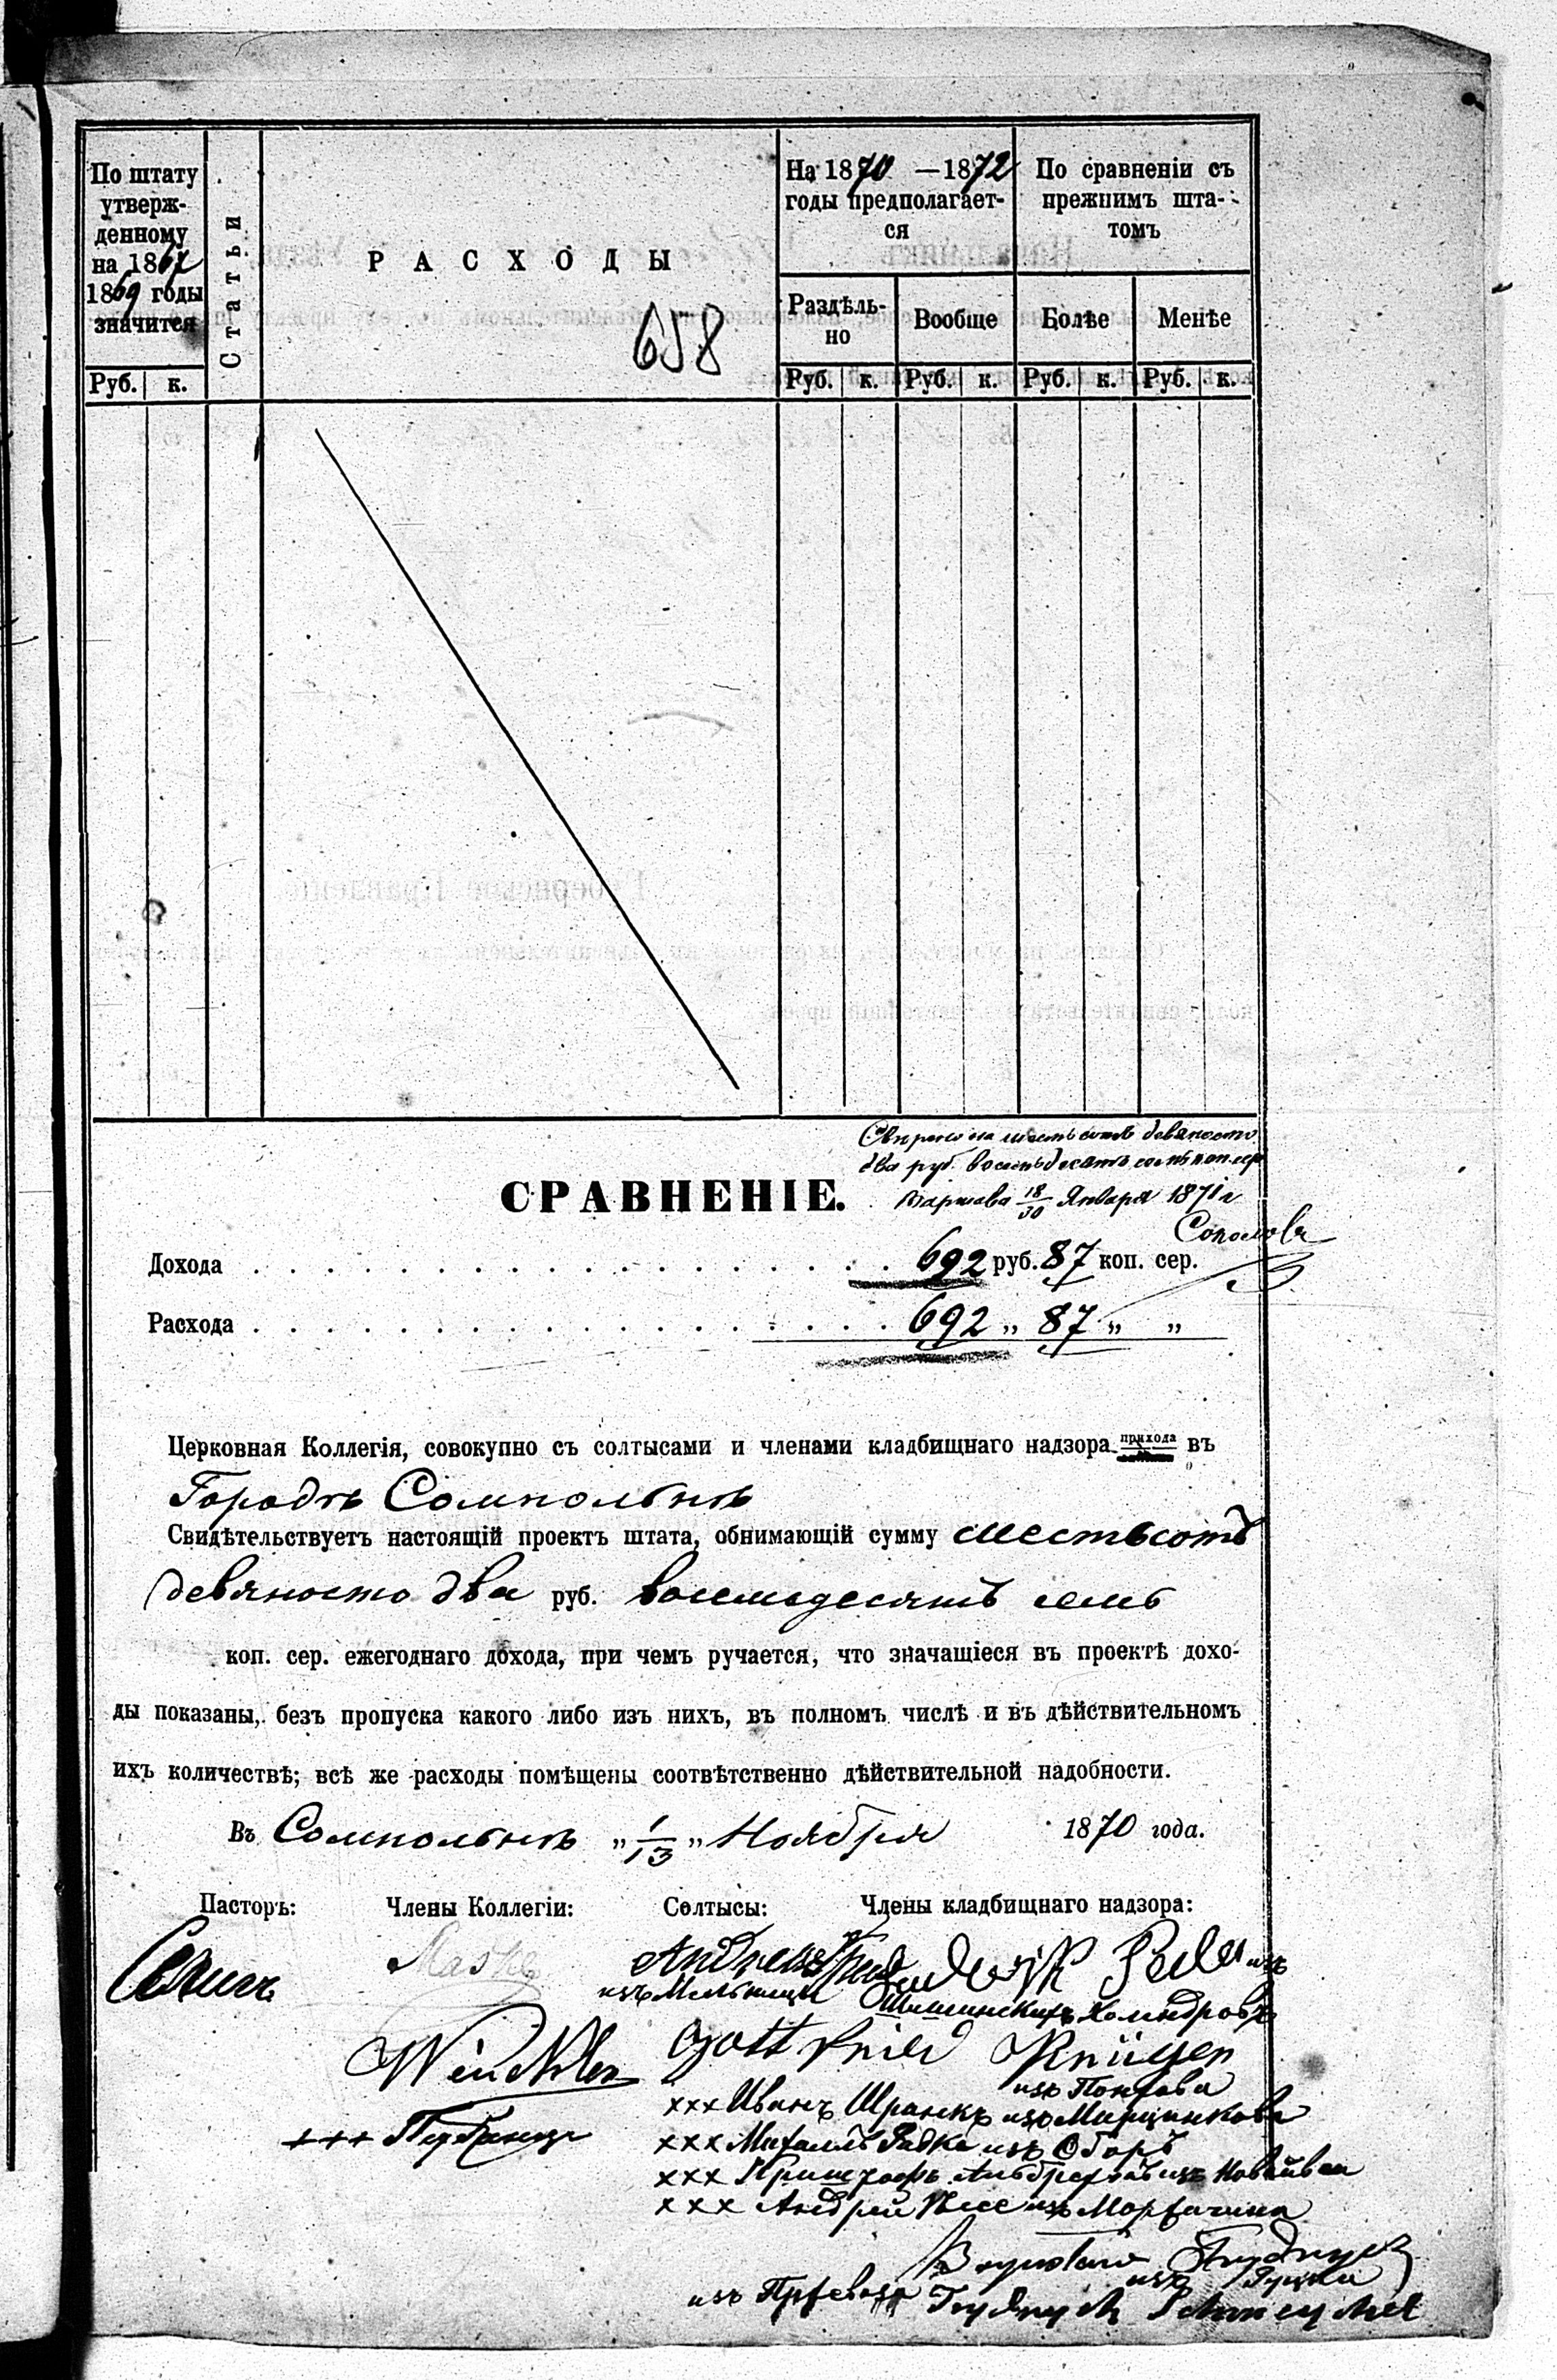 По штату
утверж-
денному
на 1867
1869 годы
значится
Статьи
РАСХОДЫ
658
На 1870 —1872
годы предполагает-
ся
По сравненіи съ
прежнимъ шта-
томъ
Раздѣль-
но
Вообще
Болѣе
Менѣе
Руб. к.
Руб. к. Руб. к. Руб. к. Руб. к.
на шестьсотъ девяносто
два руб. восемьдесятъ семь коп. сер
Варшава 18/30 Января 1871 г
СРАВНЕНІЕ.
Дохода 692 руб. 87 коп. сер.
Расхода 692 „ 87 „ „
Церковная Коллегія, совокупно съ солтысами и членами кладбищнаго надзора прихода въ
Городѣ Сомпольнѣ
Свидѣтельствуетъ настоящій проектъ штата, обнимающій сумму шестьсотъ
девяносто два руб. восемьдесятъ семь
коп. сер. ежегоднаго дохода, при чемъ ручается, что значащіеся въ проектѣ дохо-
ды показаны, безъ пропуска какого либо изъ нихъ, въ полномъ числѣ и въ дѣйствительномъ
ихъ количествѣ; всѣ же расходы помѣщены соотвѣтственно дѣйствительной надобности.
Въ Сомпольнѣ „ 1/13 „ Ноября 1870 года.
Пасторъ: Члены Коллегіи: Солтысы: Члены кладбищнаго надзора:
Maske
изъ
изъ Мельницы
Gottfried Krüger
изъ
xxx Иванъ Шранкъ изъ
xxx Радке изъ
xxx изъ
xxx Андрей изъ
изъ
изъ Frydrych